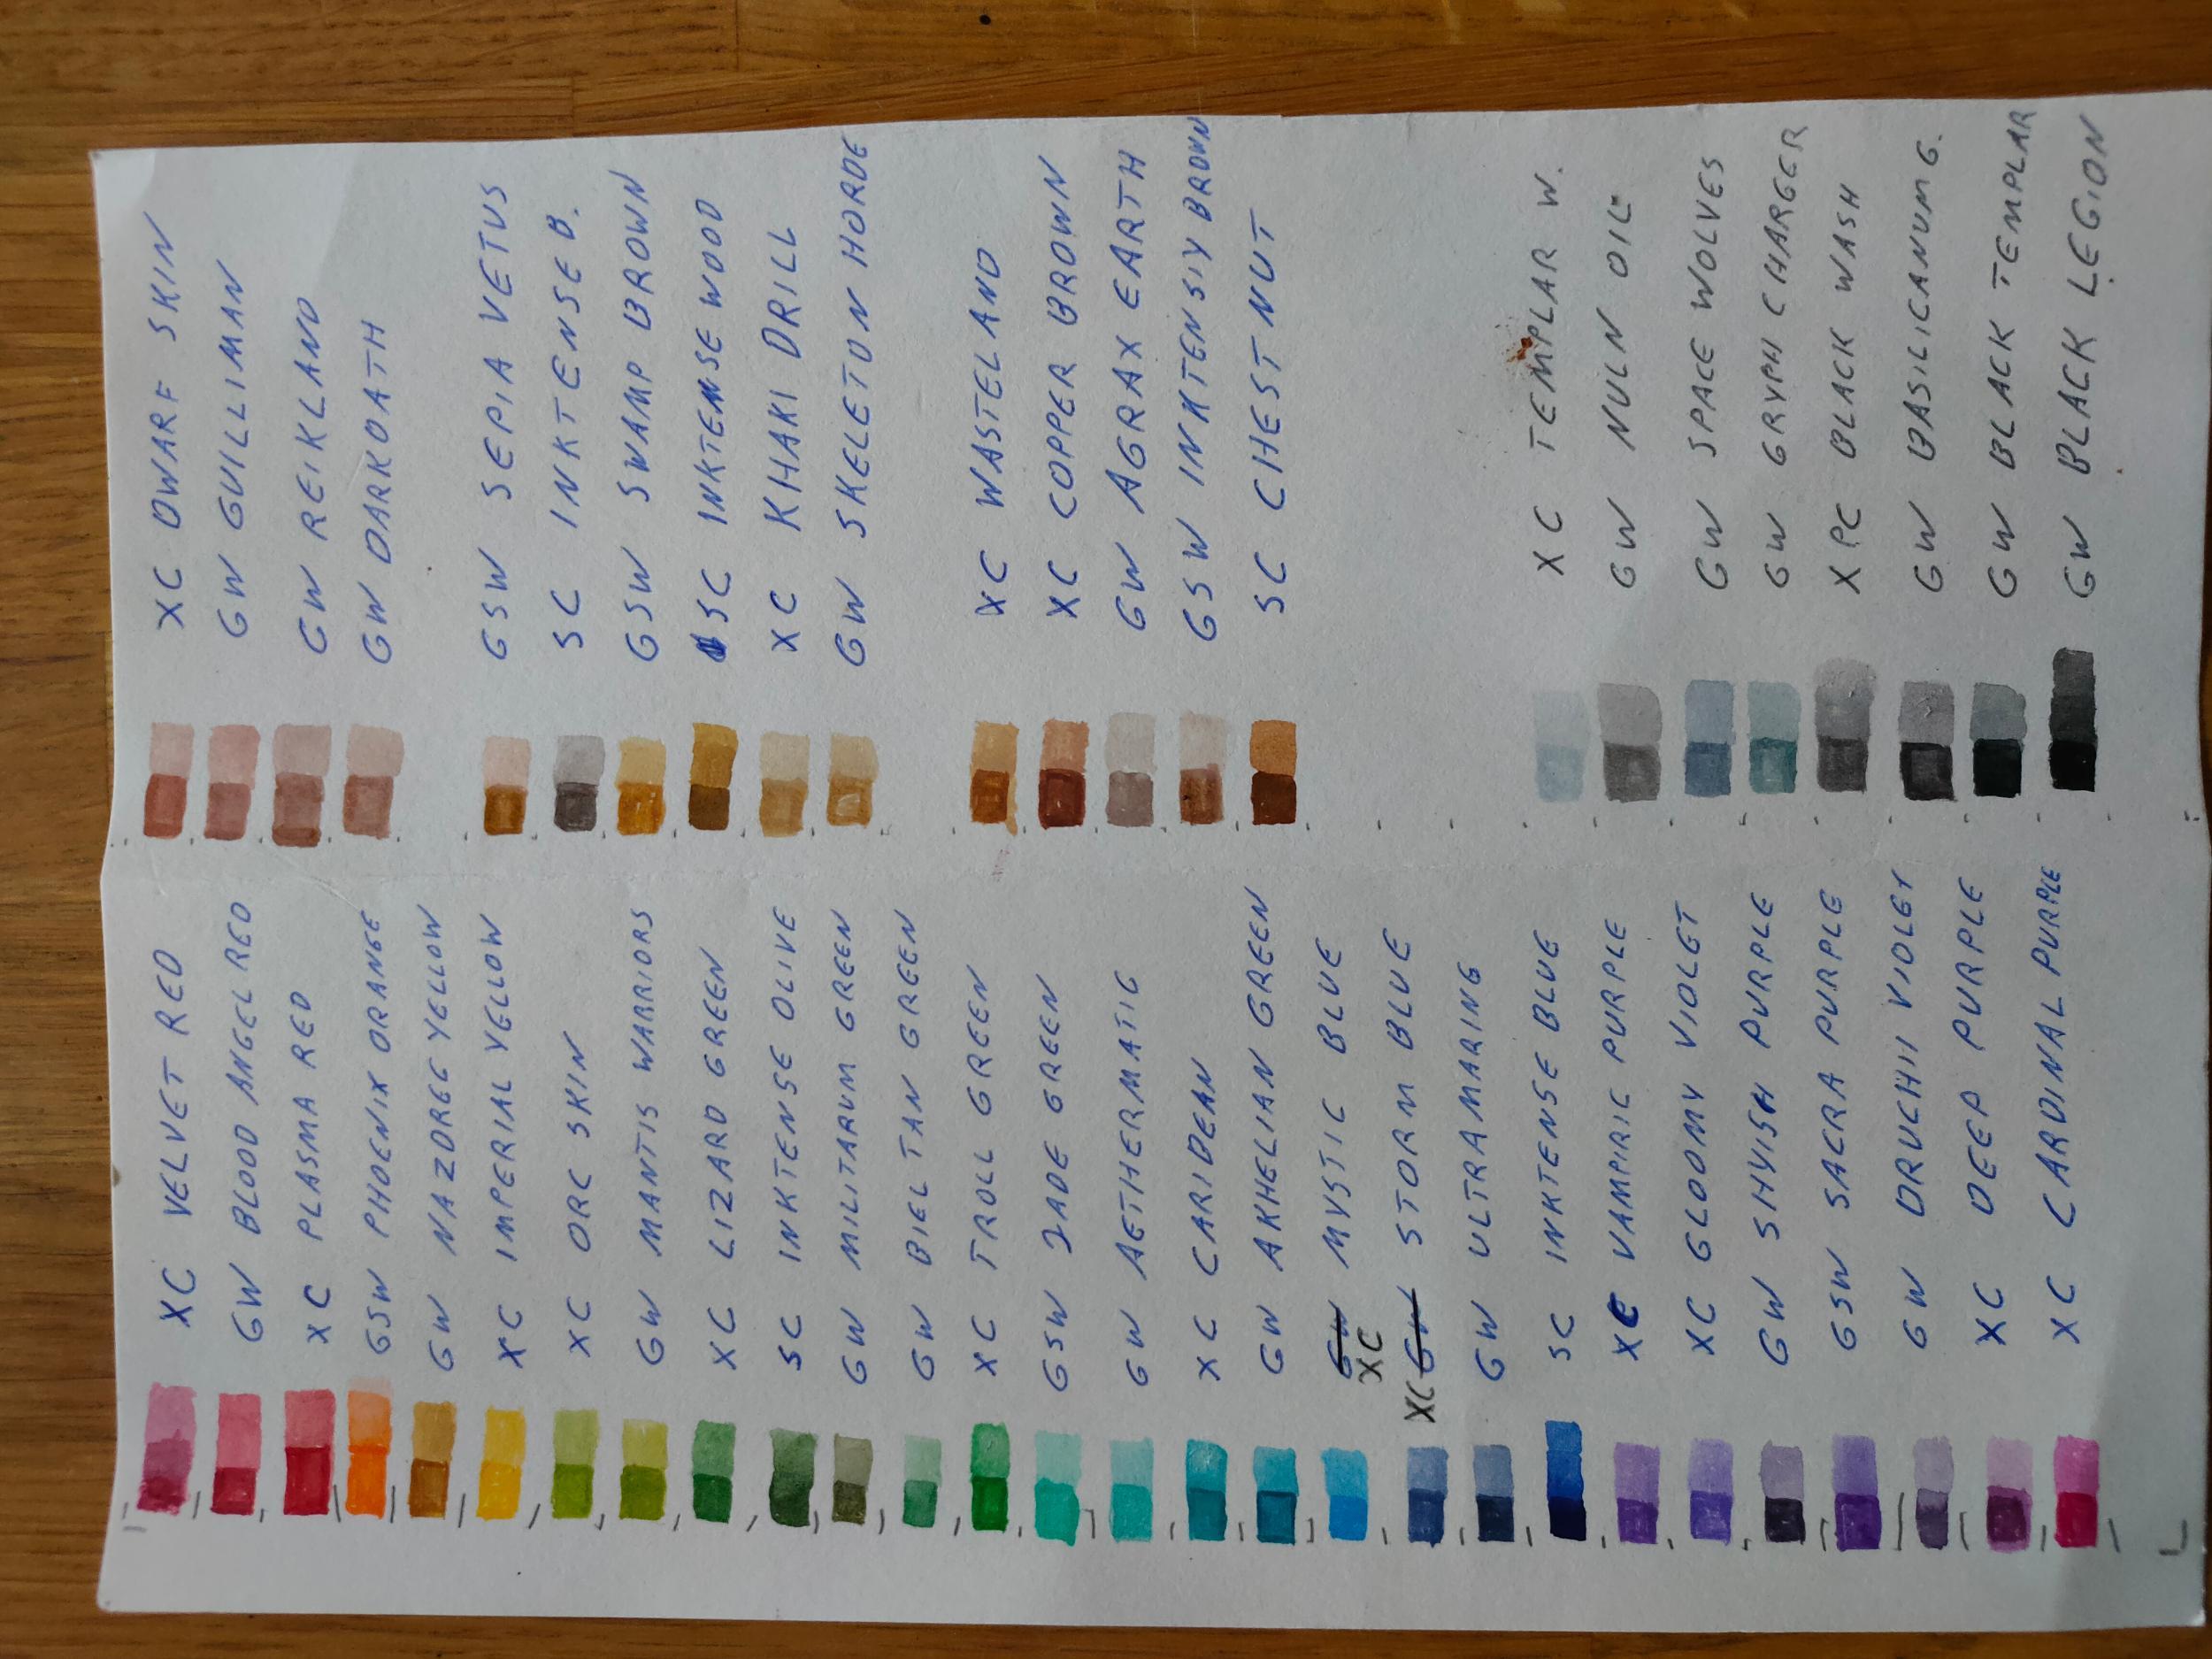 XC VELVET RED
GW BLOOD ANGEL RED
XC PLASMA RED
GSW PHOENIX ORANGE
GW NAZDREG YELLOW
XC IMPERIAL YELLOW
XC ORC SKIN
GW MANTIS WARRIORS
XC LIZARD GREEN
SC INKTENSE OLIVE
GW MILITARUM GREEN
GW BIEL TAN GREEN
XC TROLL GREEN
GSW JADE GREEN
GW AETHERMATIC
XC CARIDEAN
GW AKHELIAN GREEN
GW XC MYSTIC BLUE
XC GW STORM BLUE
GW ULTRAMARING
SC INKTENSE BLUE
XC VAMPIRIC PURPLE
XC GLOOMY VIOLET
GW SHYISH PURPLE
GSW SACRA PURPLE
GW DRUCHII VIOLET
XC DEEP PURPLE
XC CARDINAL PURPLE
XC DWARF SKIN
GW GUILLIMAN
GW REIKLAND
GW DARKOATH
GSW SEPIA VETUS
SC INKTENSE B.
GSW SWAMP BROWN
SC INKTENSE WOOD
XC KHAKI DRILL
GW SKELETON HORDE
XC WASTELAND
XC COPPER BROWN
GW AGRAX EARTH
GSW INKTENSIY BROWN
SC CHESTNUT
XC TEMPLAR W.
GW NULN OIL
GW SPACE WOLVES
GW GRYPH CHARGER
XPC BLACK WASH
GW BASILICANUM G.
GW BLACK TEMPLAR
GW BLACK LEGION